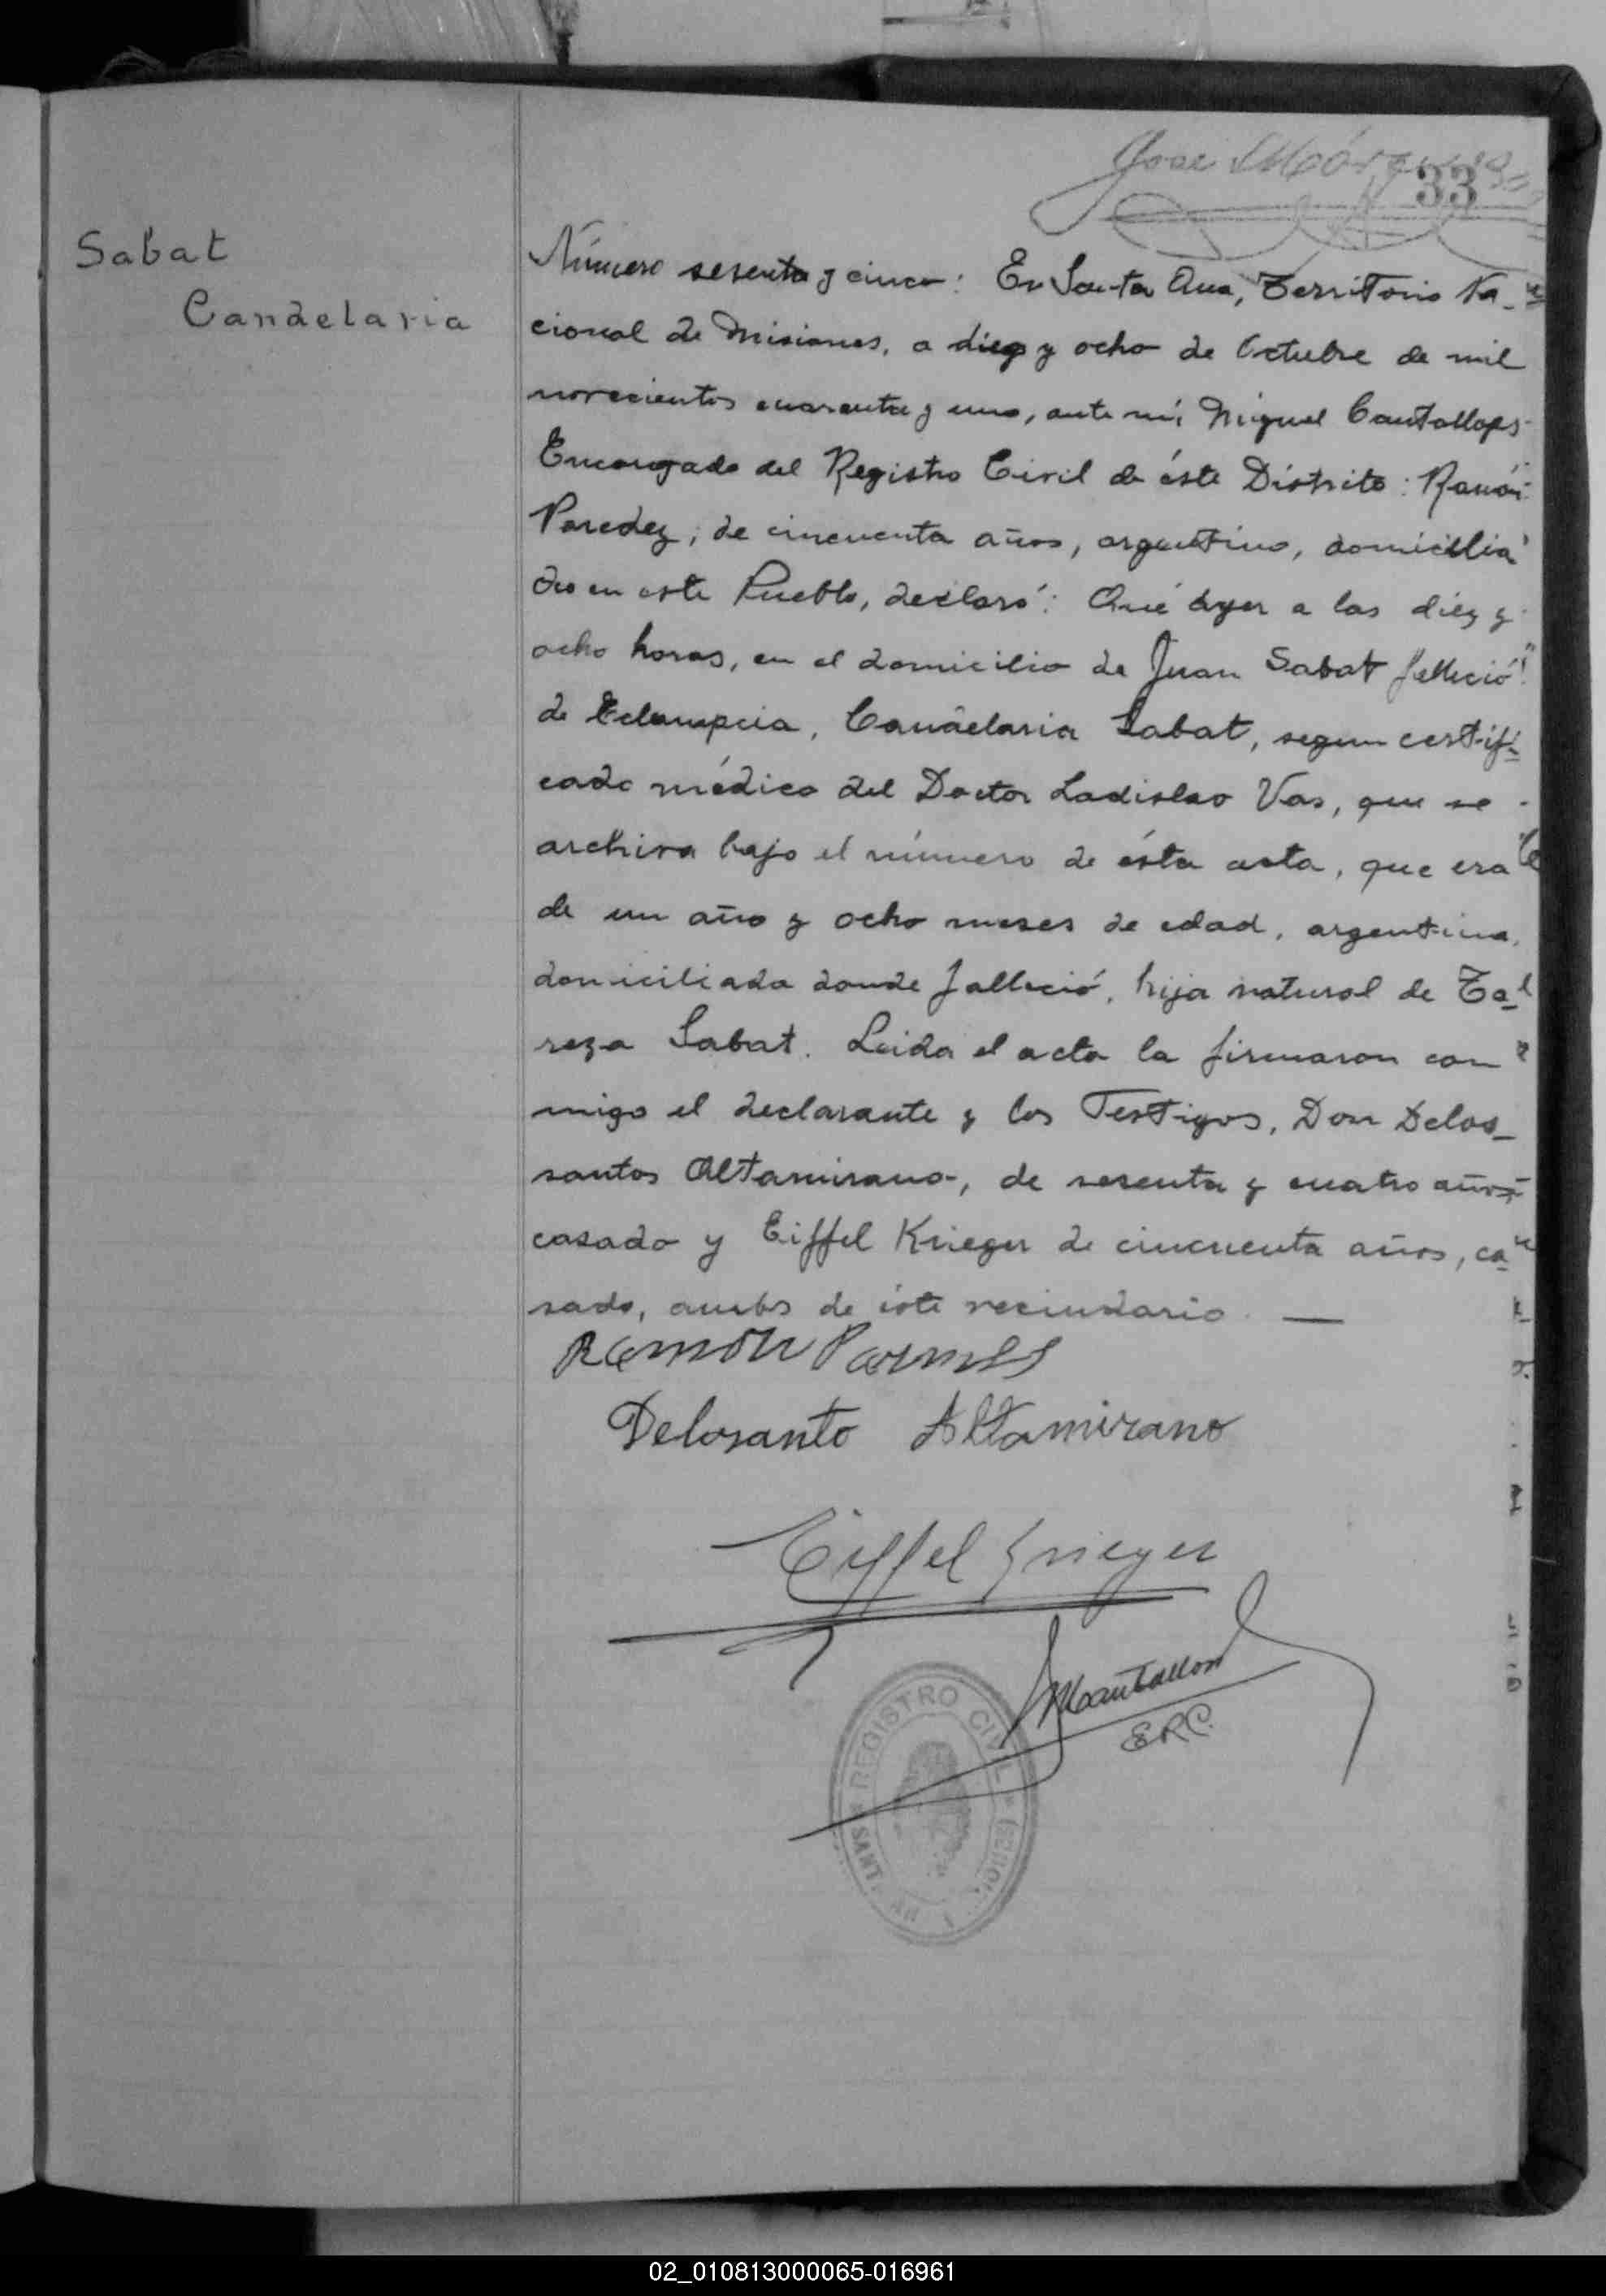 Jose
33
Sabat
Candelaria
Número sesenta y cinco: En Santa Ana, Territorio Na-
cional de Misiones, a diez y ocho de Octubre de mil
novecientos cuarenta y uno, ante mí, Miguel Cantallops
Encargado del Registro Civil de éste Distrito: Ramón
Paredez, de cincuenta años, argentino, domicilia
do en este Pueblo, declaró: Qué ayer a las diez y
ocho horas, en el domicilio de Juan Sabat falleció
de Eclampcia, Candelaria Sabat, segun certifi-
cado médico del Doctor Ladislao Vas, que se
archiva bajo el número de ésta acta, que era
de un año y ocho meses de edad, argentina,
domiciliada donde falleció, hija natural de Te-
reza Sabat. Leida el acta la firmaron con
migo el declarante y los Testigos, Don Delos-
santos Altamirano, de sesenta y cuatro años
casado y Eiffel Krieger de cincuenta años, ca-
sado, ambos de éste vecindario. —
Ramon
Delosanto Altamirano
Eiffel Krieger
MCantallops
E.R.C.
REGISTRO CIVIL
02_010813000065-016961